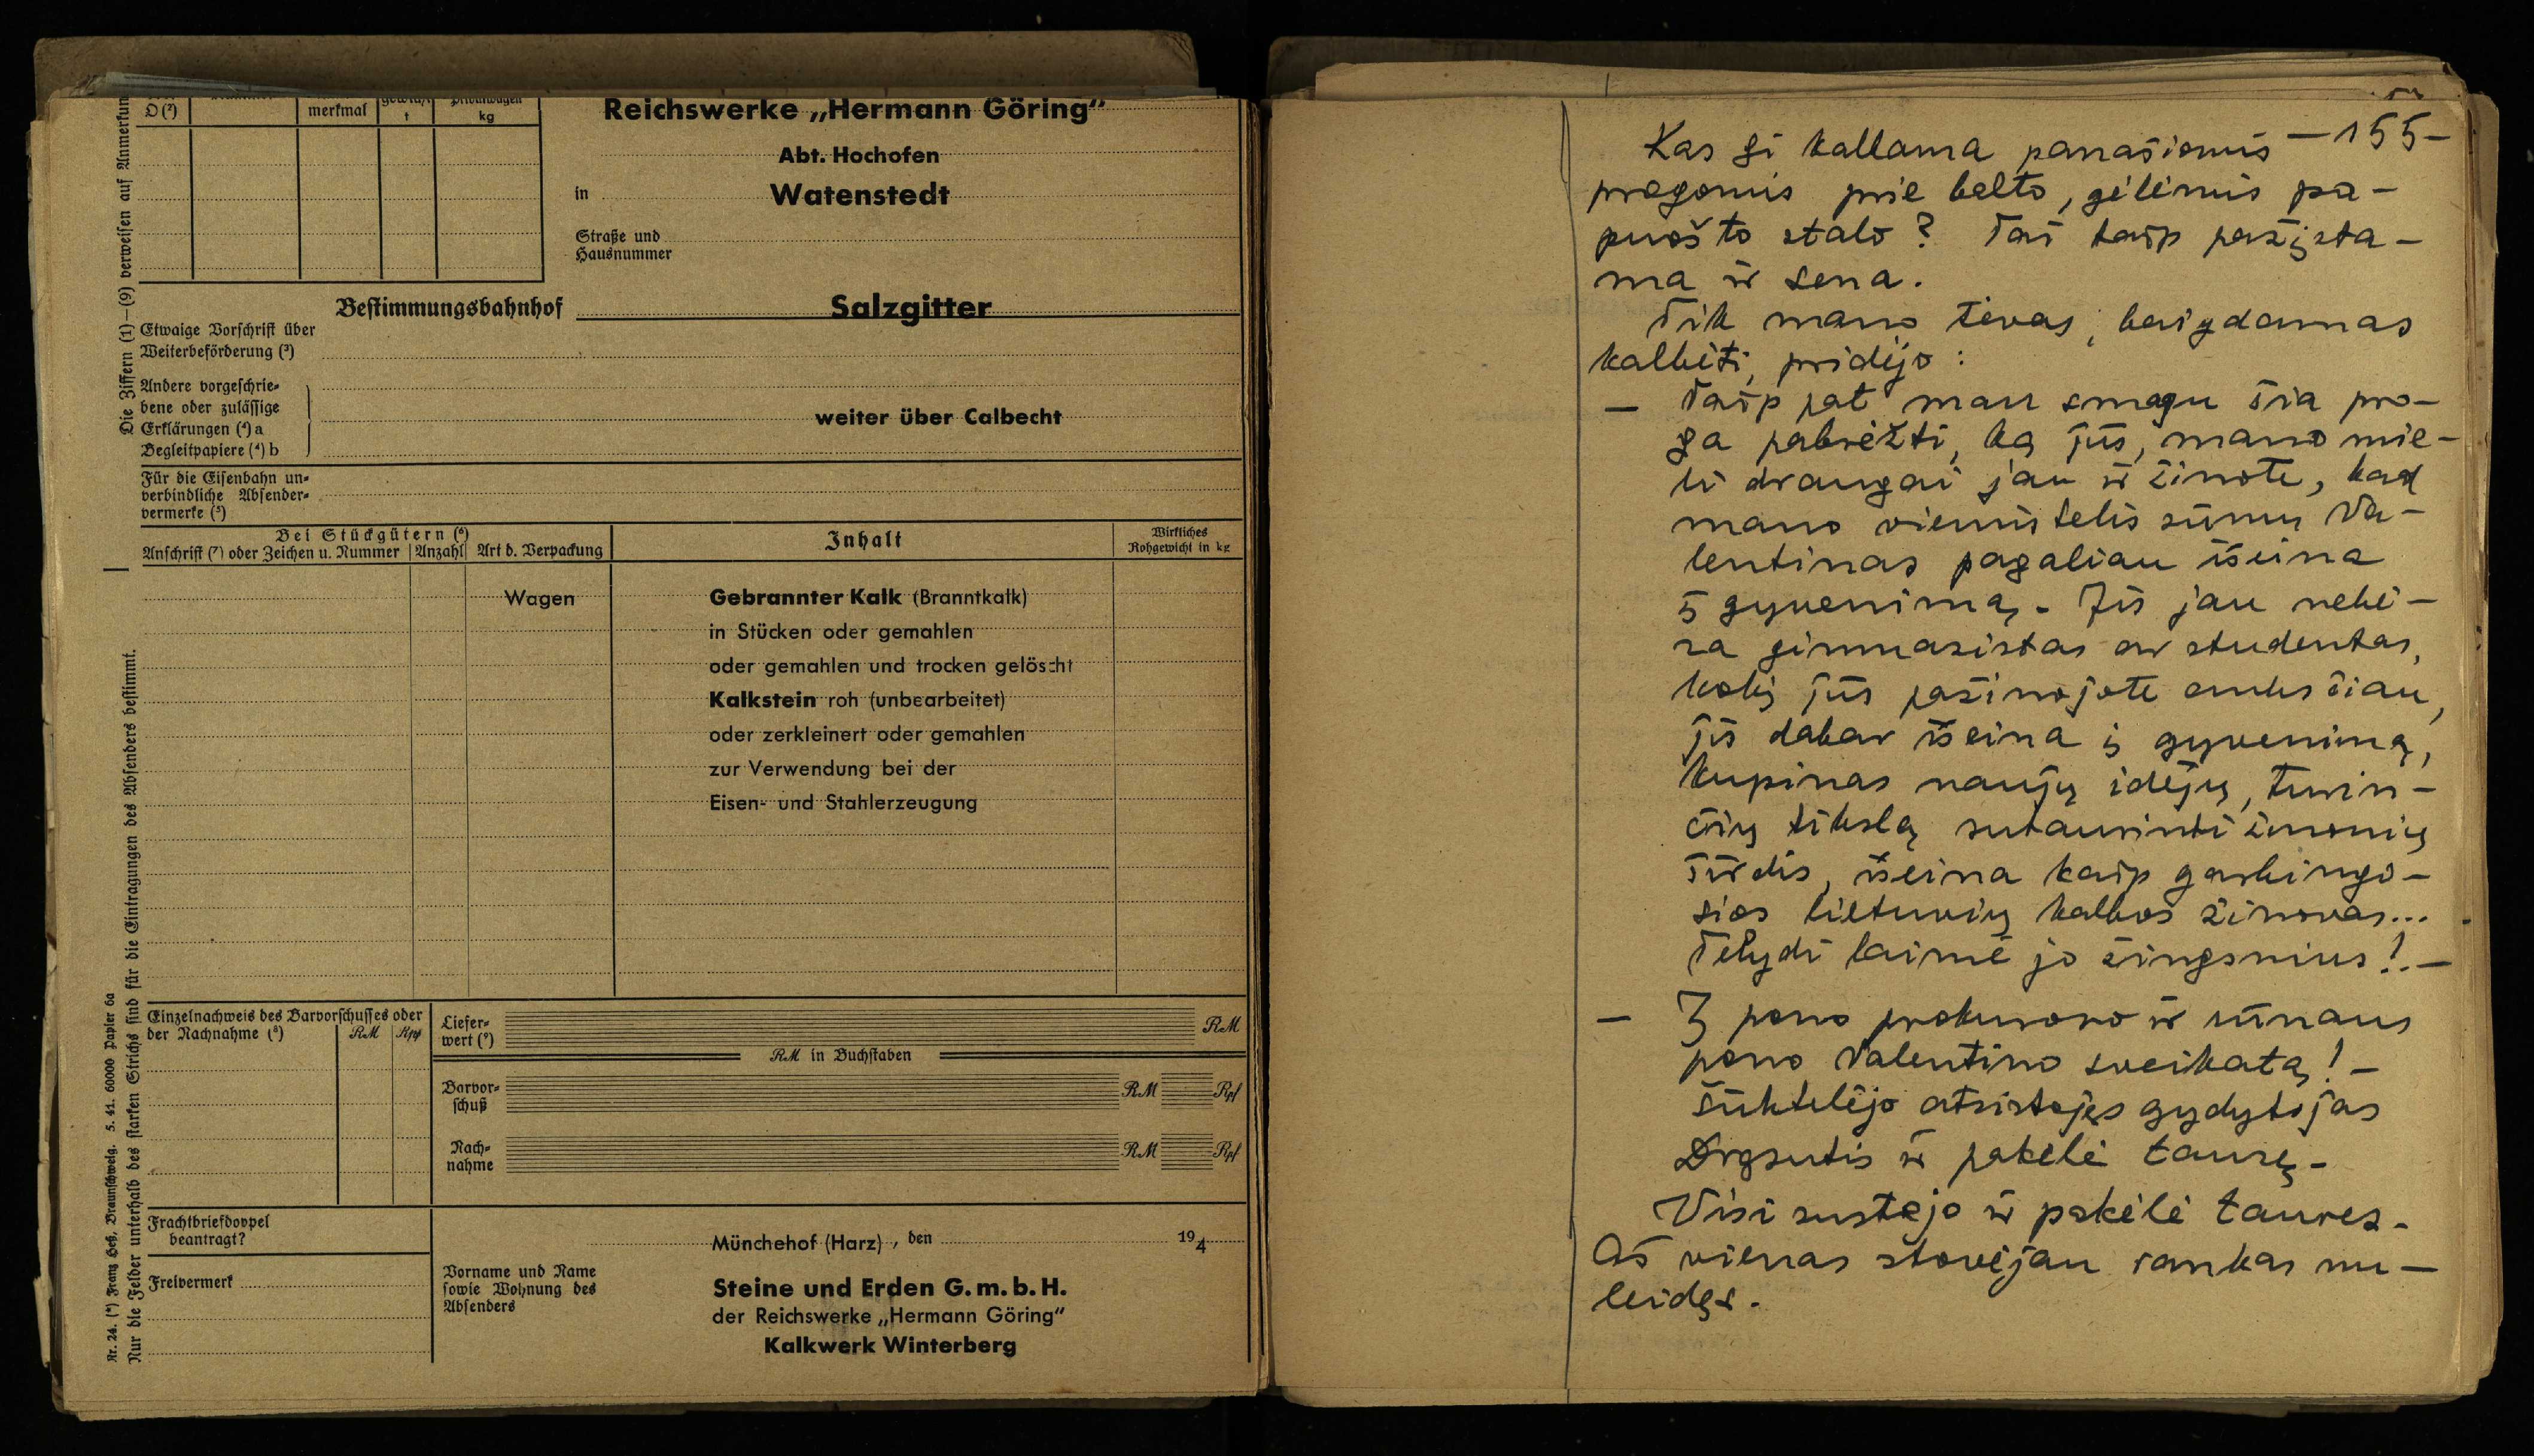 D (²)
merkmal
t
kg
Reichswerke „Hermann Göring“
Abt. Hochofen
in Watenstedt
Straße und
Hausnummer
Bestimmungsbahnhof Salzgitter
Etwaige Vorschrift über
Weiterbeförderung (³)
Andere vorgeschrie-
bene oder zulässige
Erklärungen (⁴) a
Begleitpapiere (⁴) b
weiter über Calbecht
Für die Eisenbahn un-
verbindliche Absender-
vermerke (⁵)
Bei Stückgütern (⁶)
Anschrift (⁷) oder Zeichen u. Nummer
Anzahl
Art d. Verpackung
Inhalt
Wirkliches
Rohgewicht in kg
Wagen
Gebrannter Kalk (Branntkalk)
in Stücken oder gemahlen
oder gemahlen und trocken gelöscht
Kalkstein roh (unbearbeitet)
oder zerkleinert oder gemahlen
zur Verwendung bei der
Eisen- und Stahlerzeugung
Einzelnachweis des Barvorschusses oder
der Nachnahme (⁸)
RM
Rpf
Liefer-
wert (⁹)
RM
RM in Buchstaben
Barvor-
schuß
RM
Rpf
Nach-
nahme
RM
Rpf
Frachtbriefdoppel
beantragt?
Freivermerk
Münchehof (Harz), den 194
Vorname und Name
sowie Wohnung des
Absenders
Steine und Erden G.m.b.H.
der Reichswerke „Hermann Göring“
Kalkwerk Winterberg
Die Ziffern (1)—(9) verweisen auf Anmerkun
Nur die Felder unterhalb des starken Strichs sind für die Eintragungen des Absenders bestimmt.
Nr. 24. (*) Franz Heß, Braunschweig. 5. 41. 60000 Papier 6a
—155—
Kas gi kalbama panašiomis
progomis prie balto, gėlėmis pa-
puošto stalo? Tai taip pažįsta-
ma ir sena.
Tik mano tėvas, baigdamas
kalbėti, pridėjo:
— Taip pat man smagu šia pro-
ga pabrėžti, ką jūs, mano mie-
li draugai jau ir žinote, kad
mano vienistelis sūnus Va-
lentinas pagaliau išeina
į gyvenimą. Jis jau nebė-
ra gimnazistas ar studentas,
kokį jūs pažinojote anksčiau,
jis dabar išeina į gyvenimą,
kupinas naujų idėjų, turin-
čių tikslą sutaurinti žmonių
širdis, išeina kaip garbingo-
sios lietuvių kalbos žinovas...
Telydi laimė jo žingsnius!. —
— Į pono prokuroro ir sūnaus
pono Valentino sveikatą! —
šūktelėjo atsistojęs gydytojas
Drąsutis ir pakėlė taurę.
Visi sustojo ir pakėlė taures.
Aš vienas stovėjau rankas nu—
leidęs.